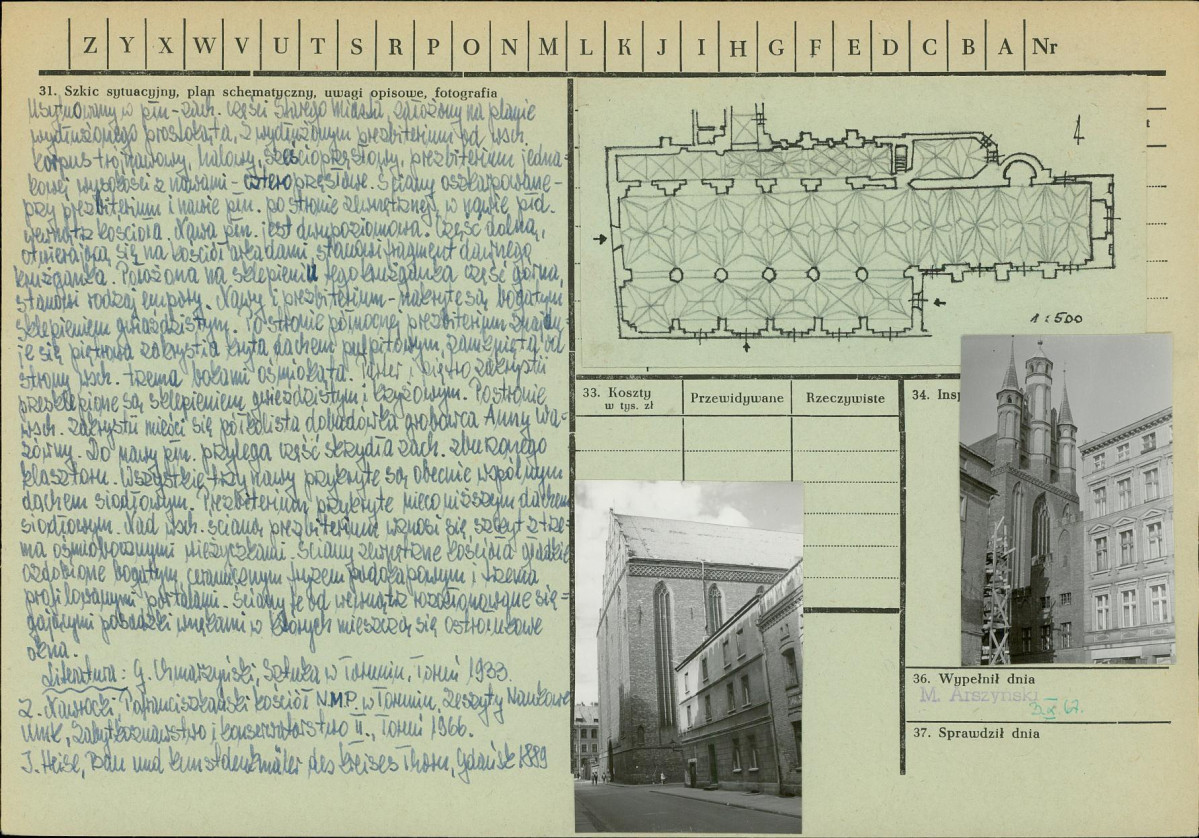 Z Y X W V U T S R P O N M L K J I H G F E D C B A Nr
31. Szkic sytuacyjny, plan schematyczny, uwagi opisowe, fotografia
Usytuowany w płn-zach. części Starego Miasta, założony na planie
wydłużonego prostokąta, z wydłużonym prezbiterium od wsch.
Korpus trójnawowy, halowy, sześcioprzęsłowy, prezbiterium jedna-
kowej wysokości z nawami - czteroprzęsłowe. Ściany oszkarpowane -
przy prezbiterium i nawie płn. po stronie zewnętrznej, w nawie pid.
wewnątrz kościoła. Nawa płn. jest dwupoziomowa. Część dolna,
otwierająca się na kościół arkadami, stanowi fragment dawnego
krużganka. Położona na sklepieniu tego krużganka część górna,
stanowi rodzaj empory. Nawy i prezbiterium - nakryte są bogatym
sklepieniem gwiaździstym. Po stronie północnej prezbiterium znajdu-
je się piętrowa zakrystia kryta dachem pulpitowym, zamknięta od
strony wsch. trzema bokami ośmiokąta. Parter i piętro zakrystii
przesklepione są sklepieniem gwieździstym i krzyżowym. Po stronie
wsch. zakrystii mieści się półkolista dobudówka grobowca Anny Wa-
zówny. Do nawy płn. przylega część skrzydła zach. zburzonego
klasztoru. Wszystkie trzy nawy przykryte są obecnie wspólnym
dachem siodłowym. Prezbiterium przykryte nieco niższym dachem
siodłowym. Nad wsch. ścianą prezbiterium wznosi się szczyt z trze-
ma ośmiobocznymi wieżyczkami. Ściany zewnętrzne kościoła gładkie
ozdobione bogatym, ceramicznym fryzem podokapowym i trzema
profilowanymi portalami. Ściany te od wewnątrz rozczłonkowane się-
gającymi posadzki wnękami w których mieszczą się ostrołukowe
okna.
Literatura: G. Chmarzyński, Sztuka w Toruniu, Toruń 1933.
Z. Nawrocki Pofranciszkański kościół N.M.P. w Toruniu, Zeszyty Naukowe
UMK, Zabytkoznawstwo i konserwatorstwo II., Toruń 1966.
J. Heise, Bau und Kunstdenkmäler des Kreises Thorn, Gdańsk 1889
1:500
33. Koszty
w tys. zł
Przewidywane
Rzeczywiste
34. Insp
36. Wypełnił dnia
M. Arszyński
37. Sprawdził dnia